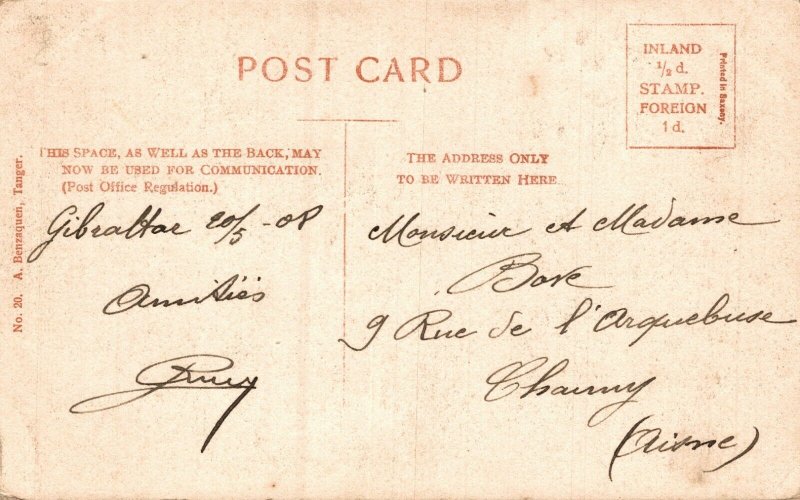 POST CARD
INLAND
1/2 d.
STAMP.
FOREIGN
1 d.
Printed in Saxony.
THIS SPACE, AS WELL AS THE BACK, MAY
NOW BE USED FOR COMMUNICATION.
(Post Office Regulation.)
THE ADDRESS ONLY
TO BE WRITTEN HERE
No. 20. A. Benzaquen, Tanger.
Gibraltar 20/5-08
Amitiés
Monsieur et Madame
9 Rue de l'Arquebuse
Chauny
(Aisne)